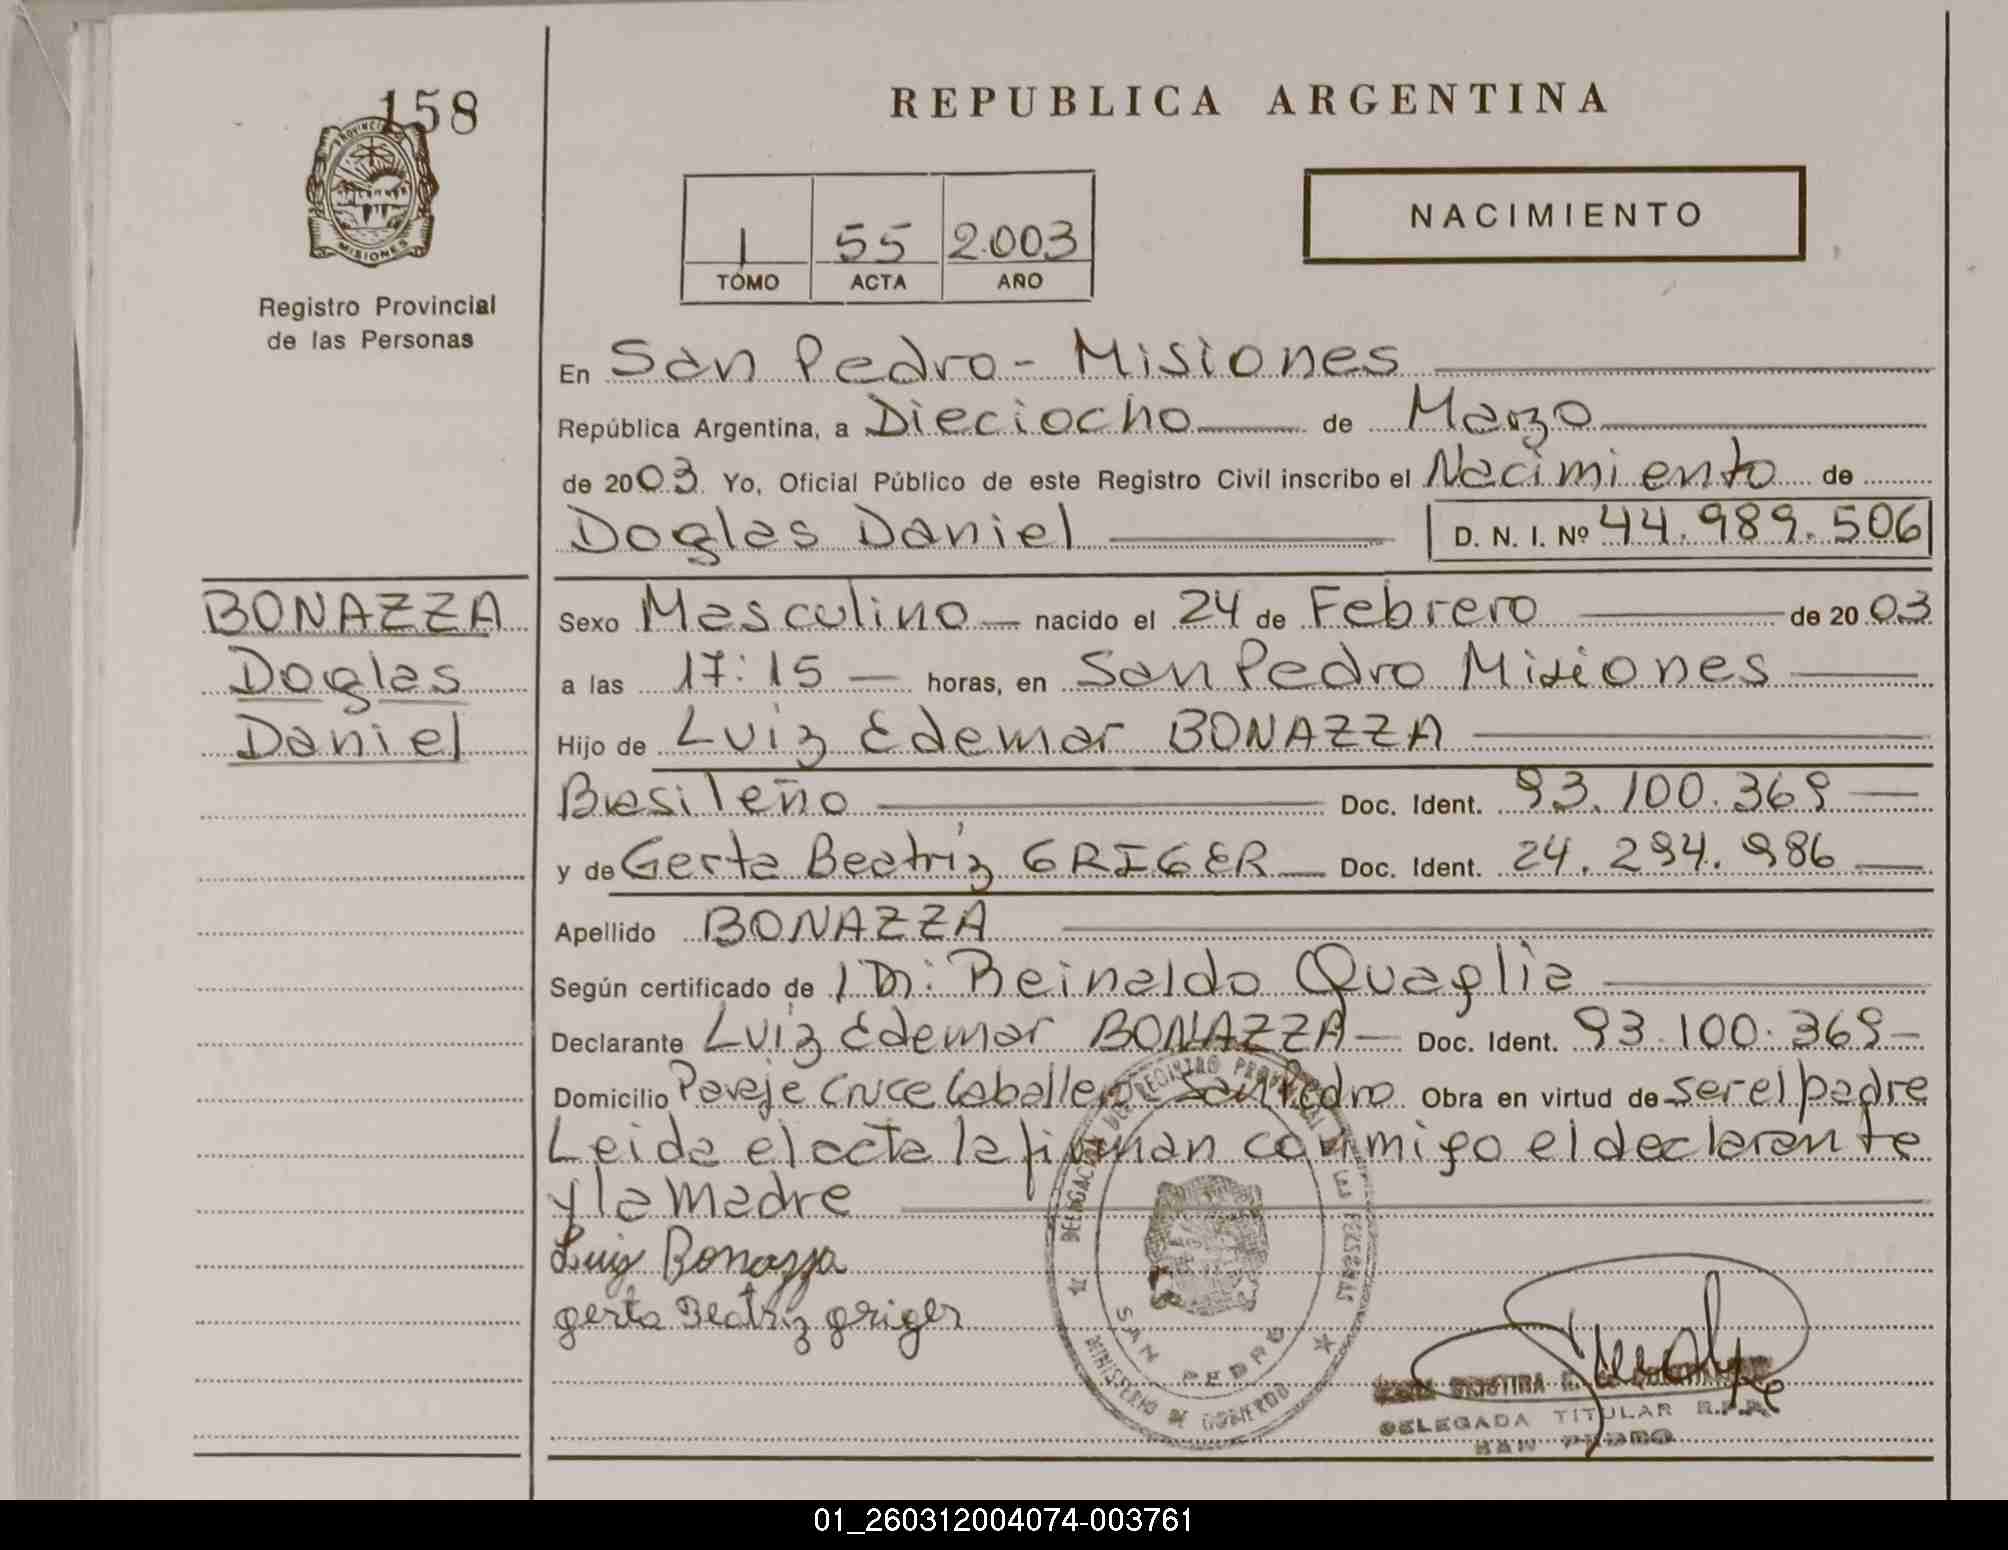 158
PROVINCIA
MISIONES
Registro Provincial
de las Personas
REPUBLICA ARGENTINA
NACIMIENTO
1 55 2.003
TOMO ACTA AÑO
En San Pedro - Misiones
República Argentina, a Dieciocho de Marzo
de 2003. Yo, Oficial Público de este Registro Civil inscribo el Nacimiento de
Doglas Daniel D. N. I. Nº 44.989.506
BONAZZA
Doglas
Daniel
Sexo Masculino nacido el 24 de Febrero de 2003
a las 17:15 horas, en San Pedro Misiones
Hijo de Luiz Edemar BONAZZA
Brasileño Doc. Ident. 93.100.369
y de Gerta Beatriz GRIGER Doc. Ident. 24.294.986
Apellido BONAZZA
Según certificado de Dr: Reinaldo Quaglia
Declarante Luiz Edemar BONAZZA Doc. Ident. 93.100.369
Domicilio Paraje Cruce Caballero San Pedro Obra en virtud de ser el padre
Leida el acta la firman conmigo el declarante
y la madre
Luiz Bonazza
gerta Beatriz griger
DELEGACION DEL REGISTRO PROVINCIAL DE LAS PERSONAS
SAN PEDRO
MINISTERIO DE GOBIERNO
CRISTINA
DELEGADA TITULAR R.P.P.
SAN PEDRO
01_260312004074-003761